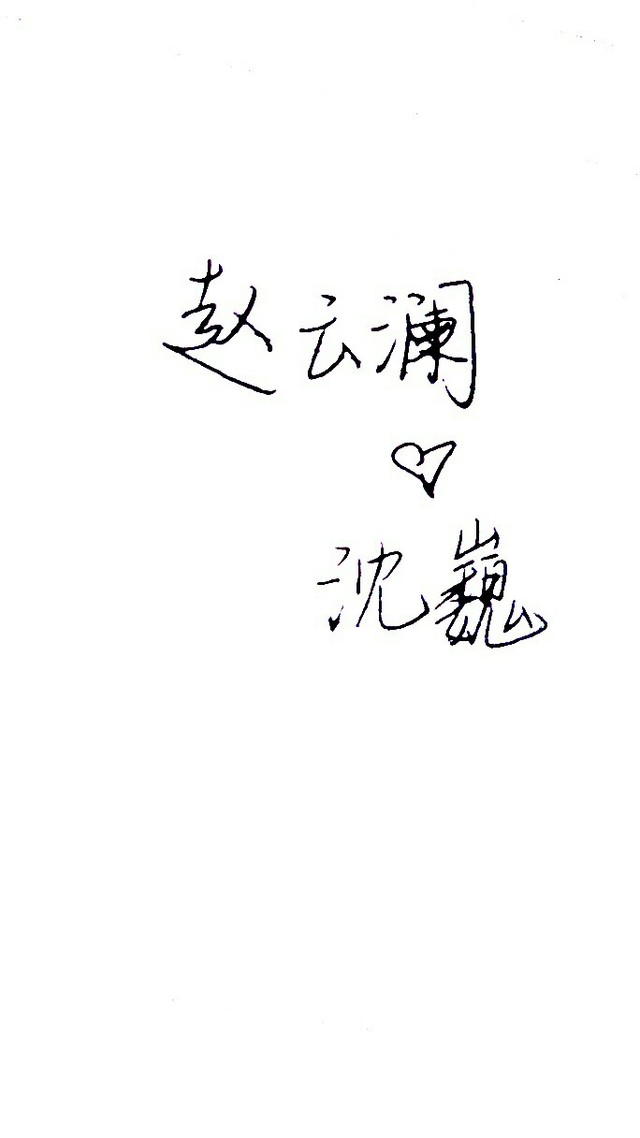 赵云澜
♡
沈巍